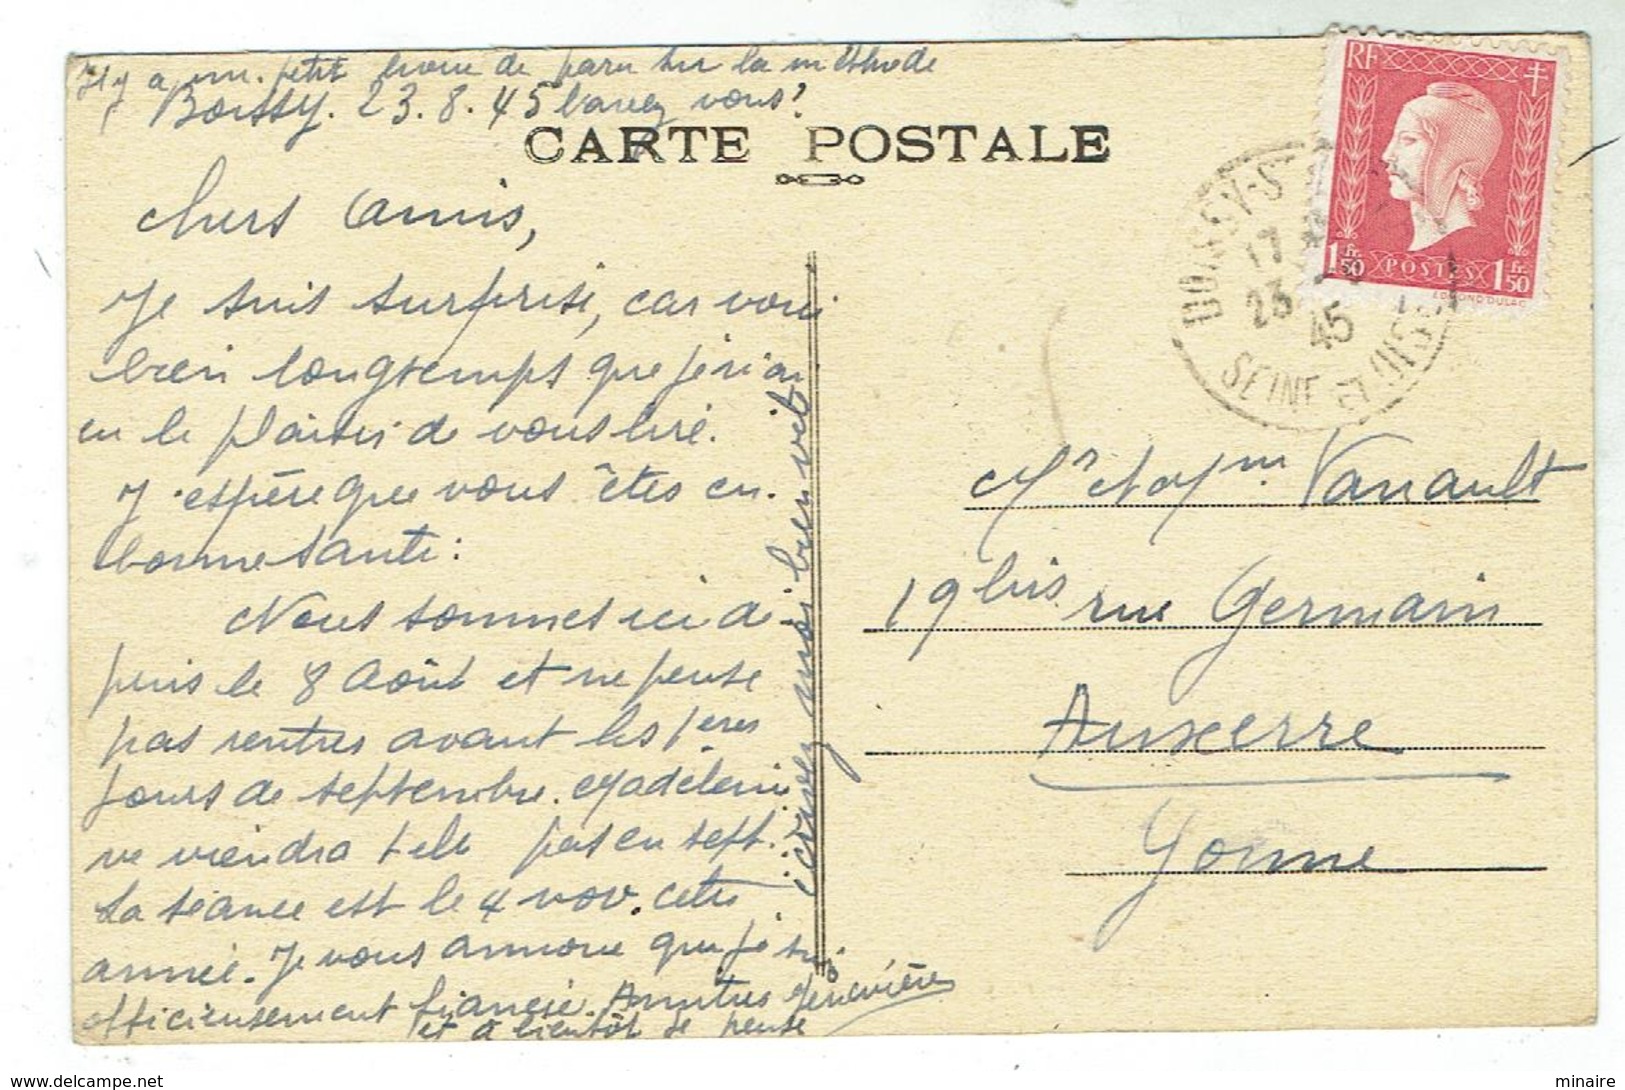 Il y a un petit livre de paru sur la méthode
Boissy. 23.8.45 l'avez vous?
CARTE POSTALE
Chers Amis,
Je suis surprise, car voici
bien longtemps que je n'ai
eu le plaisir de vous lire.
J'espère que vous êtes en
bonne santé.
Nous sommes ici de
puis le 8 Août et ne pense
pas rentrer avant les 1ères
jours de septembre. Madeleine
ne viendra pas en sept.
La séance est le 4 nov. cette
année. Je vous annonce que je suis
officieusement fiancée. Amitiés Geneviève
et à bientôt je pense
écrivez moi bien vite
RF
1 Fr. 50 POSTES 1 Fr. 50
EDMOND DULAC
BOISSY-ST
17
23
45
SEINE ET OISE
Mr et Mme Vanault
19 bis rue Germain
Auxerre
Yonne
www.delcampe.net
minaire